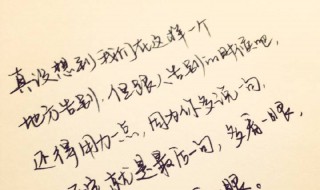 真没想到我们在这样一个
地方告别,但跟人告别的时候吧,
还得用力一点,因为你多说一句,
就是最后一句,多看一眼,
眼。